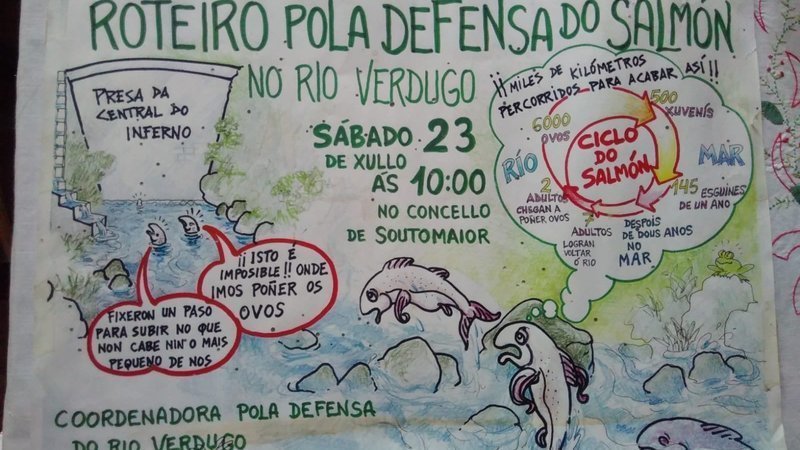 ROTEIRO POLA DEFENSA DO SALMÓN
NO RIO VERDUGO
SÁBADO 23
DE XULLO
ÁS 10:00
NO CONCELLO
DE SOUTOMAIOR
PRESA DA
CENTRAL DO
INFERNO
¡¡ISTO É
IMPOSIBLE!! ONDE
IMOS POÑER OS
OVOS
FIXERON UN PASO
PARA SUBIR NO QUE
NON CABE NIN'O MAIS
PEQUENO DE NOS
¡¡MILES DE KILÓMETROS
PERCORRIDOS PARA ACABAR ASÍ!!
CICLO
DO
SALMÓN
RÍO
MAR
6000
OVOS
500
XUVENÍS
145 ESGUINES
DE UN ANO
DESPOIS
DE DOUS ANOS
NO
MAR
ADULTOS
LOGRAN
VOLTAR
Ó RIO
2
ADULTOS
CHEGAN A
POÑER OVOS
COORDENADORA POLA DEFENSA
DO RIO VERDUGO